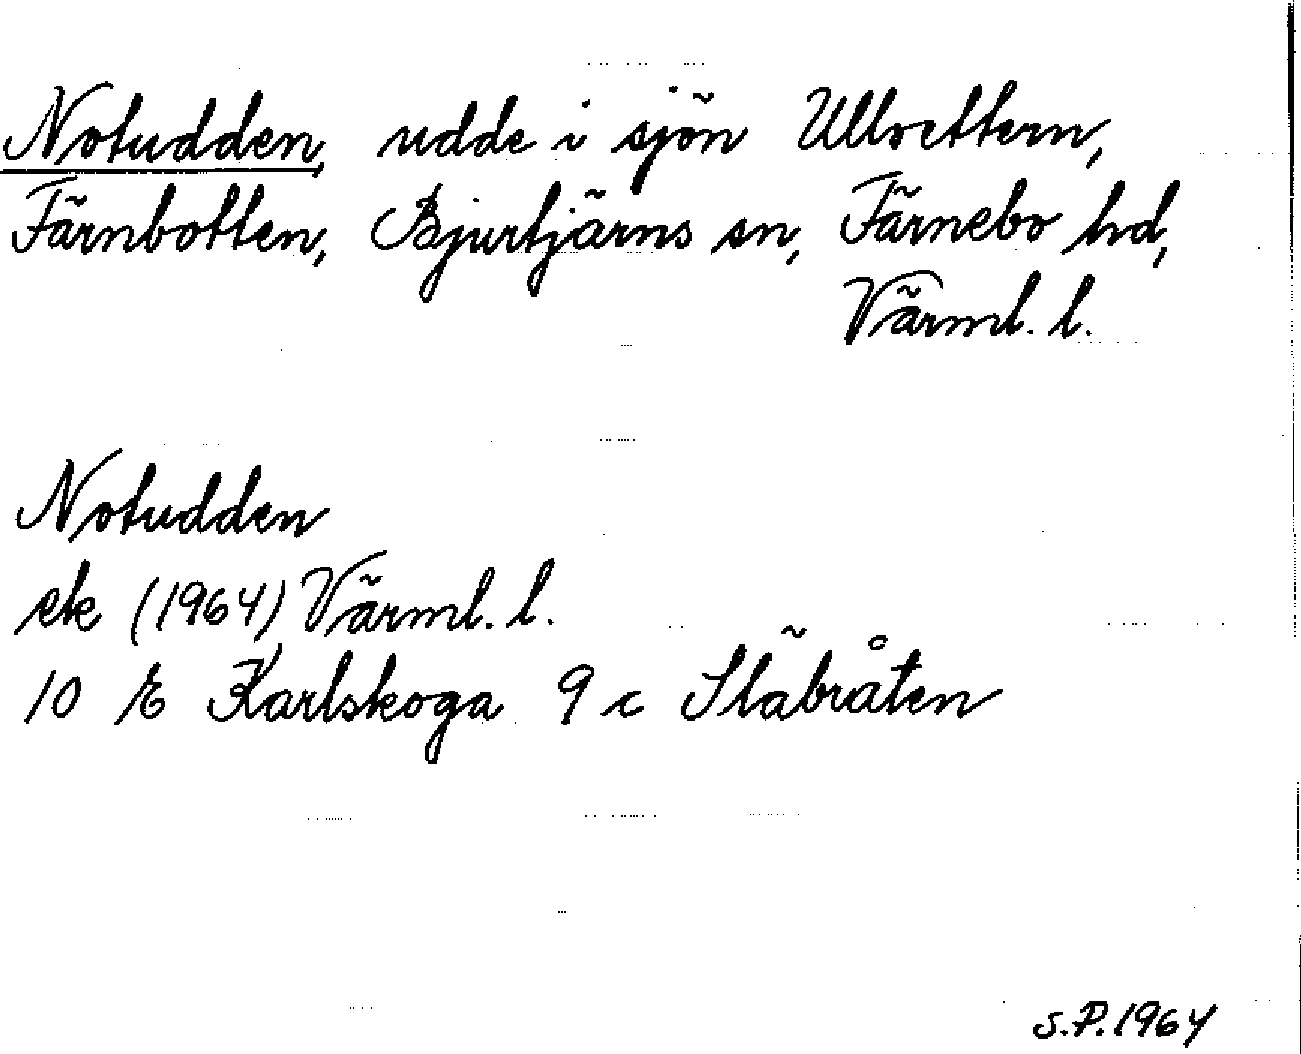 Notudden, udde i sjön Ullvettern,
Färnbotten, Bjurtjärns sn, Färnebo hd,
Värml. l.
Notudden
ek (1964) Värml. l.
10 E Karlskoga 9 c Släbråten
S.P. 1964